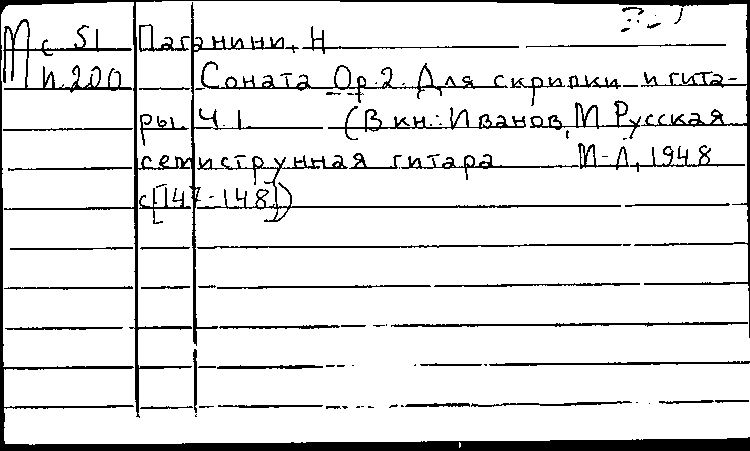 М с 51 Паганини, Н
п.200 Соната Op.2. Для скрипки и гита-
ры. Ч.1. (В кн.: Иванов, М. Русская
семиструнная гитара М-Л, 1948
с[147-148])